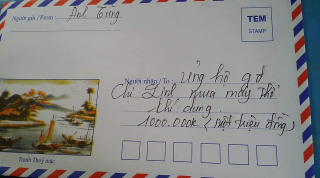 Người gửi / From: Anh Trung
TEM
STAMP
Người nhận / To: Ủng hộ gđ
Chị Linh mua máy thở
thí dung
1000.000k (một triệu đồng)
Tranh Thuỷ mặc